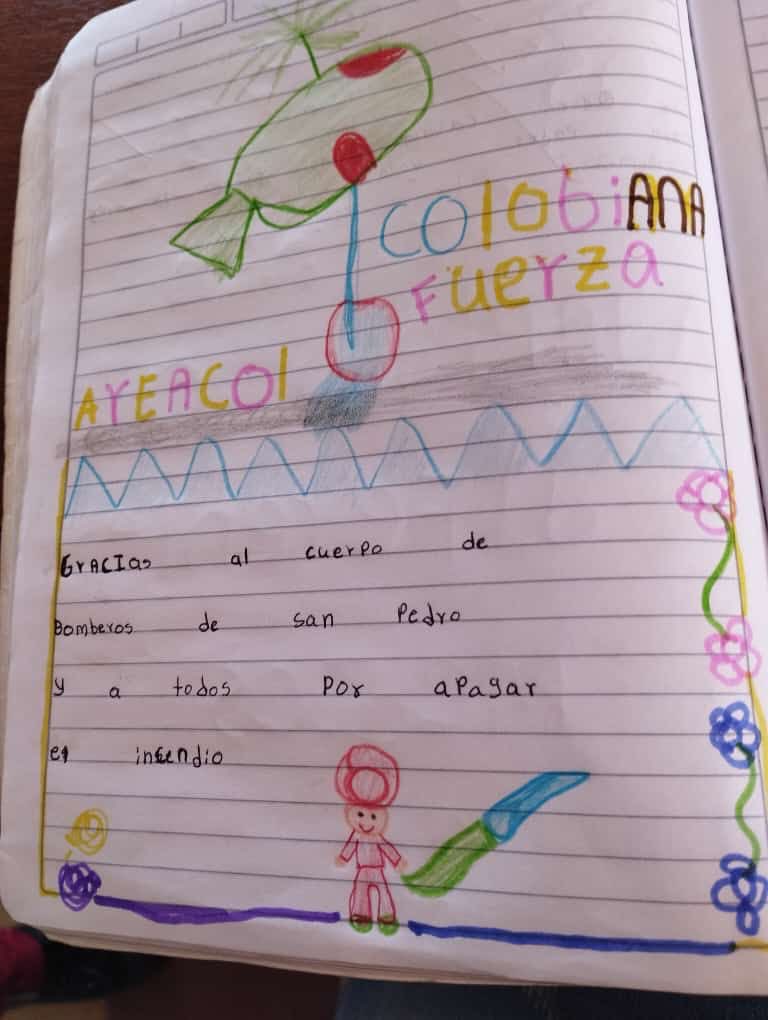 COlobiANA
FUerza
AYEACOl
GrACIas al cuerpo de
Bomberos de san Pedro
y a todos Por aPagar
el insendio